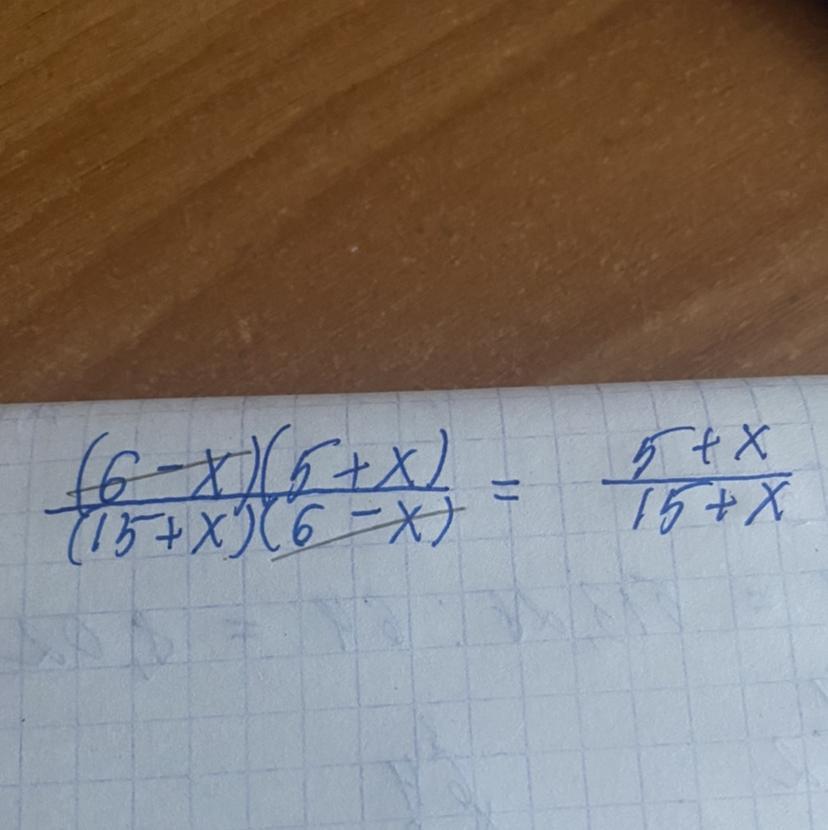 (6-x)(5+x) / (15+x)(6-x) = 5+x / 15+x